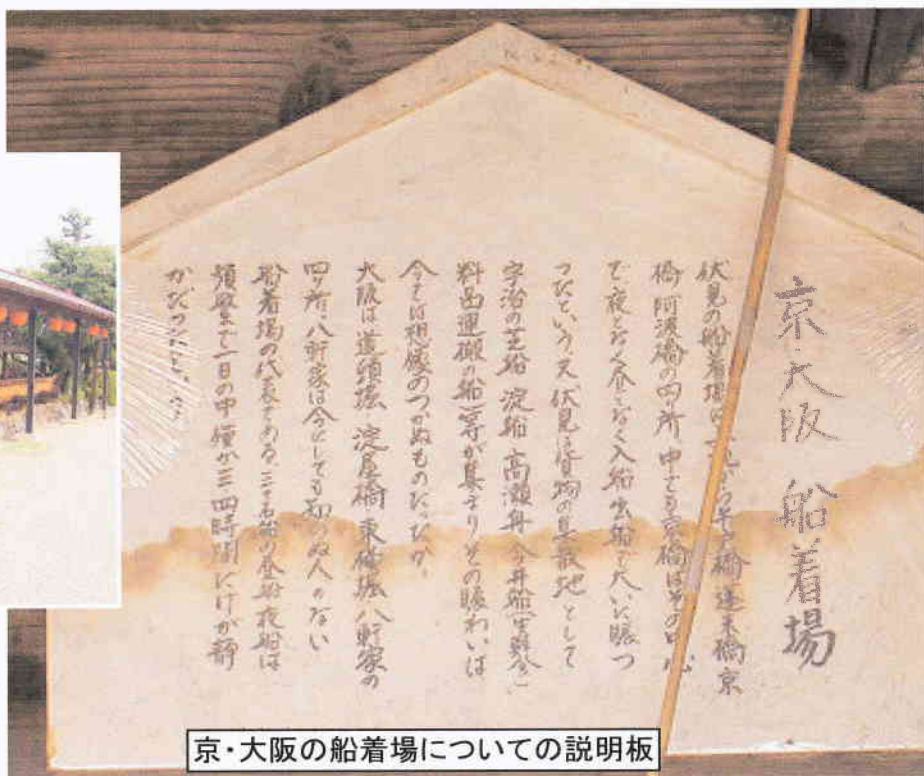 京 大阪 船着場
伏見の船着場は 橋 蓬来橋 京
橋 阿波橋の四ヶ所 中でも京橋はその中心
で夜となく昼となく入船出船で大いに賑つ
つたという 又 伏見は貨物の集散地として
宇治の芝船 淀船 高瀬舟 今井船
料品運搬の船 等が集まりその賑わいは
今では想像のつかぬものだつたか。
大阪は 道頓堀 淀屋橋 東横堀 八軒家の
四ヶ所 八軒家は今にしても知らぬ人のない
船着場の代表である ここでも船の昼船夜船は
頻繁で一日の中 僅か三 四時間だけが静
かだつたと
京・大阪の船着場についての説明板